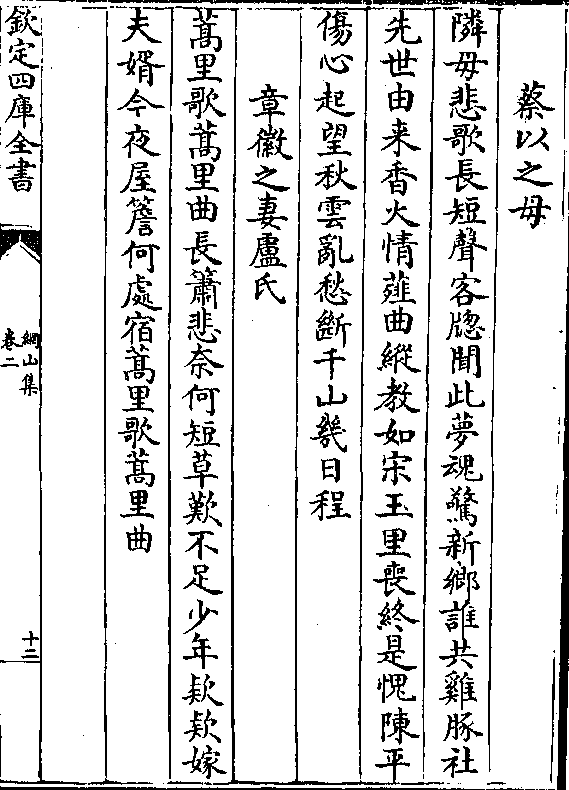 蔡以之母
隣母悲歌長短聲客牕聞此夢魂驚新鄉誰共雞豚社
先世由来香火情薤曲縱教如宋玉里喪終是愧陳平
傷心起望秋雲亂愁斷千山幾日程
章徽之妻盧氏
蒿里歌蒿里曲長簫悲奈何短草歎不足少年欵欵嫁
夫婿今夜屋簷何處宿蒿里歌蒿里曲
欽定四庫全書
網山集
卷二
十二